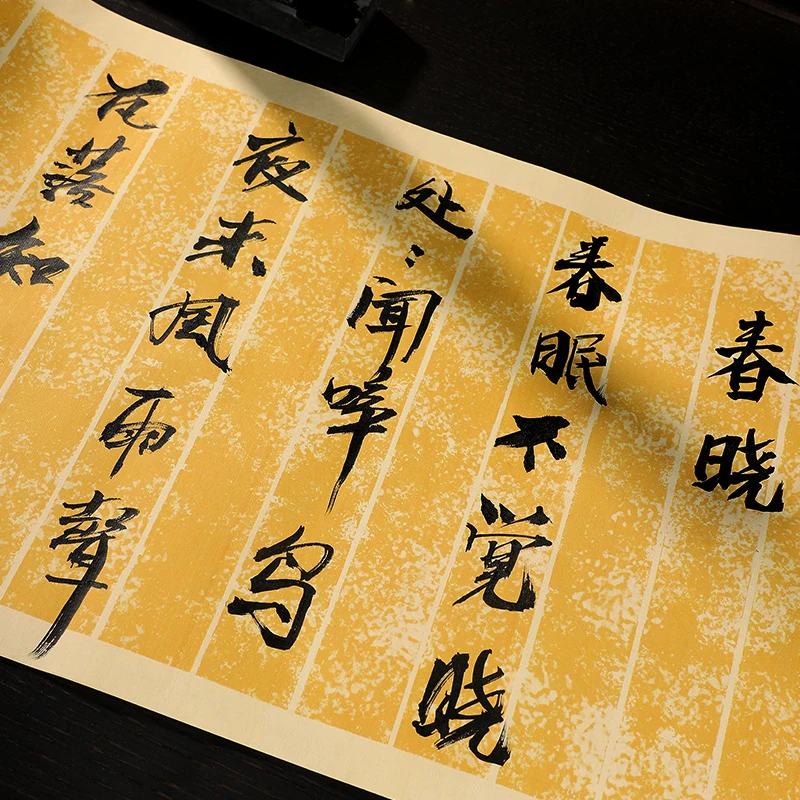 春晓
春眠不觉晓
处〻闻啼鸟
夜来风雨聲
花落知